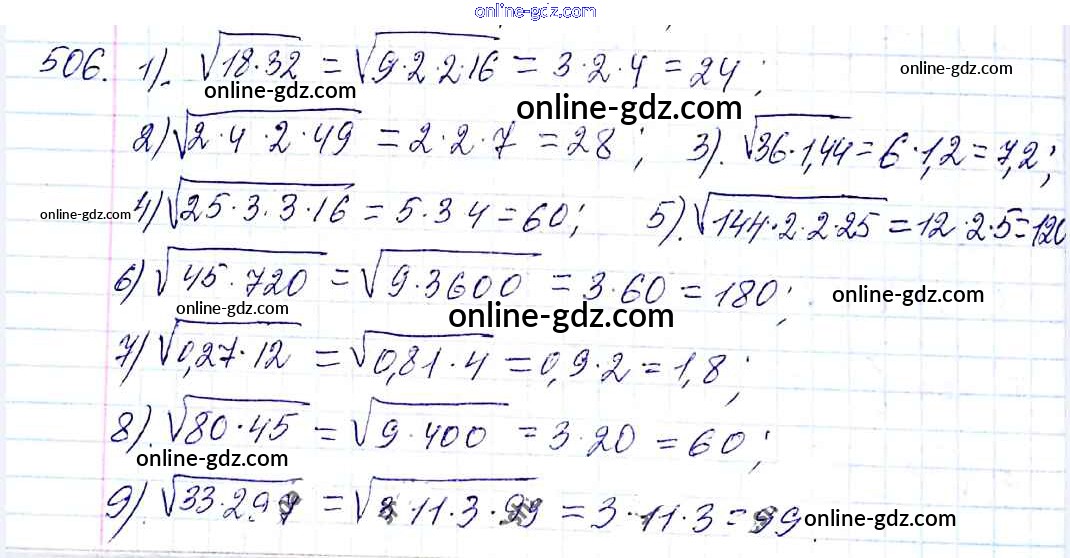 online-gdz.com
506. 1). √18·32 = √9·2·2·16 = 3·2·4 = 24;
online-gdz.com online-gdz.com
online-gdz.com
2) √2·4·2·49 = 2·2·7 = 28; 3). √36·1,44 = 6·1,2 = 7,2;
online-gdz.com 4) √25·3·3·16 = 5·3 4 = 60; 5). √144·2·2·25 = 12·2·5 = 120
6) √45·720 = √9·3600 = 3·60 = 180; online-gdz.com
online-gdz.com online-gdz.com
7) √0,27·12 = √0,81·4 = 0,9·2 = 1,8;
8). √80·45 = √9·400 = 3·20 = 60;
online-gdz.com
9). √33·297 = √3·11·3·99 = 3·11·3 = 99 online-gdz.com